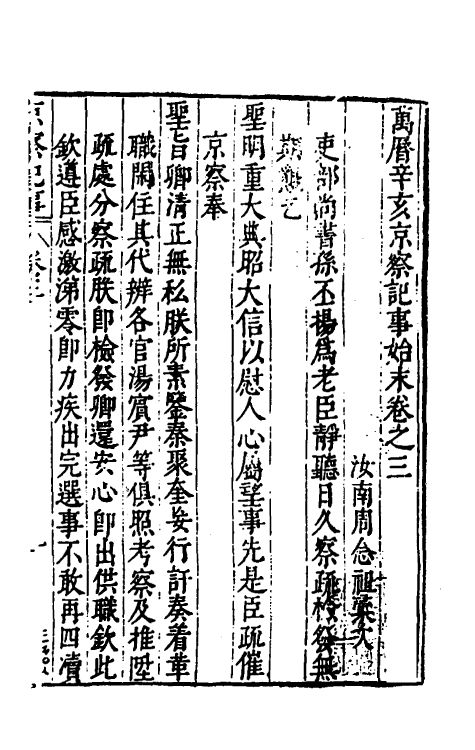 萬曆辛亥京察記事始末卷之三
汝南周念祖纂
吏部尚書孫丕揚爲老臣靜聽日久察疏檢發無
期懇乞
聖明重大典昭大信以慰人心屬望事先是臣疏催
京察奉
聖旨卿清正無私朕所素鑒秦聚奎妄行訐奏着革
職閑住其代辨各官湯賓尹等俱照考察及推陞
疏處分察疏朕即檢發卿還安心即出供職欽此
欽遵臣感激涕零即力疾出完選事不敢再四瀆
京察記事 卷三